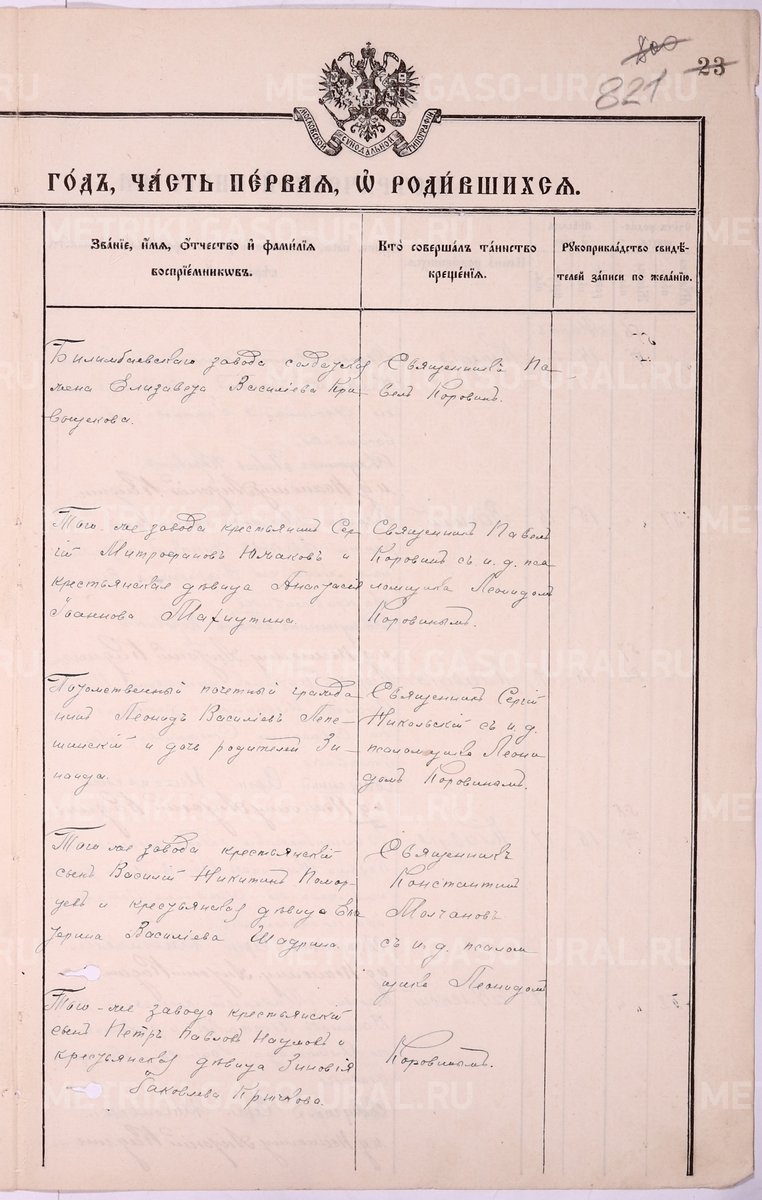 800
23
821
МОСКОВСКОЙ СѴНОДАЛЬНОЙ ТИПОГРАФІИ
ГО́ДЪ, ЧА́СТЬ ПЕ́РВАЯ, Ѡ҆ РОДИ́ВШИХСѦ.
Зва́нїе, и҆́мѧ, ѻ҆́тчество и҆ фами́лїѧ
воспрїе́мникѡвъ.
Кто̀ соверша́лъ та́инство
креще́нїѧ.
Рꙋкоприкла́дство свидѣ́-
телей за́писи по жела́нїю.
Билимбаевскаго завода солдатская
жена Елизавета Василіева Кри-
вощекова.
Священникъ Па-
велъ Коровинъ.
Того-же завода крестьянинъ Сер-
гій Митрофановъ Южаковъ и
крестьянская дѣвица Анастасія
Іоаннова Махнутина.
Священникъ Павелъ
Коровинъ съ и. д. пса-
ломщика Леонидомъ
Коровинымъ.
Потомственный почетный гражда-
нинъ Леонидъ Василіевъ Лепе-
шинскій и дочь родителей Зи-
наида.
Священникъ Сергій
Никольскій съ и. д.
псаломщика Леони-
домъ Коровинымъ.
Того же завода крестьянскій
сынъ Василій Никитинъ Помор-
цевъ и крестьянская дѣвица Ека-
терина Василіева Шадрина.
Священникъ
Константинъ
Молчановъ
съ и. д. псалом
щика Леонидомъ
Коровинымъ.
Того-же завода крестьянскій
сынъ Петръ Павловъ Наумовъ и
крестьянская дѣвица Зиновія
Яковлева Крючкова.
METRIKI.GASO-URAL.RU